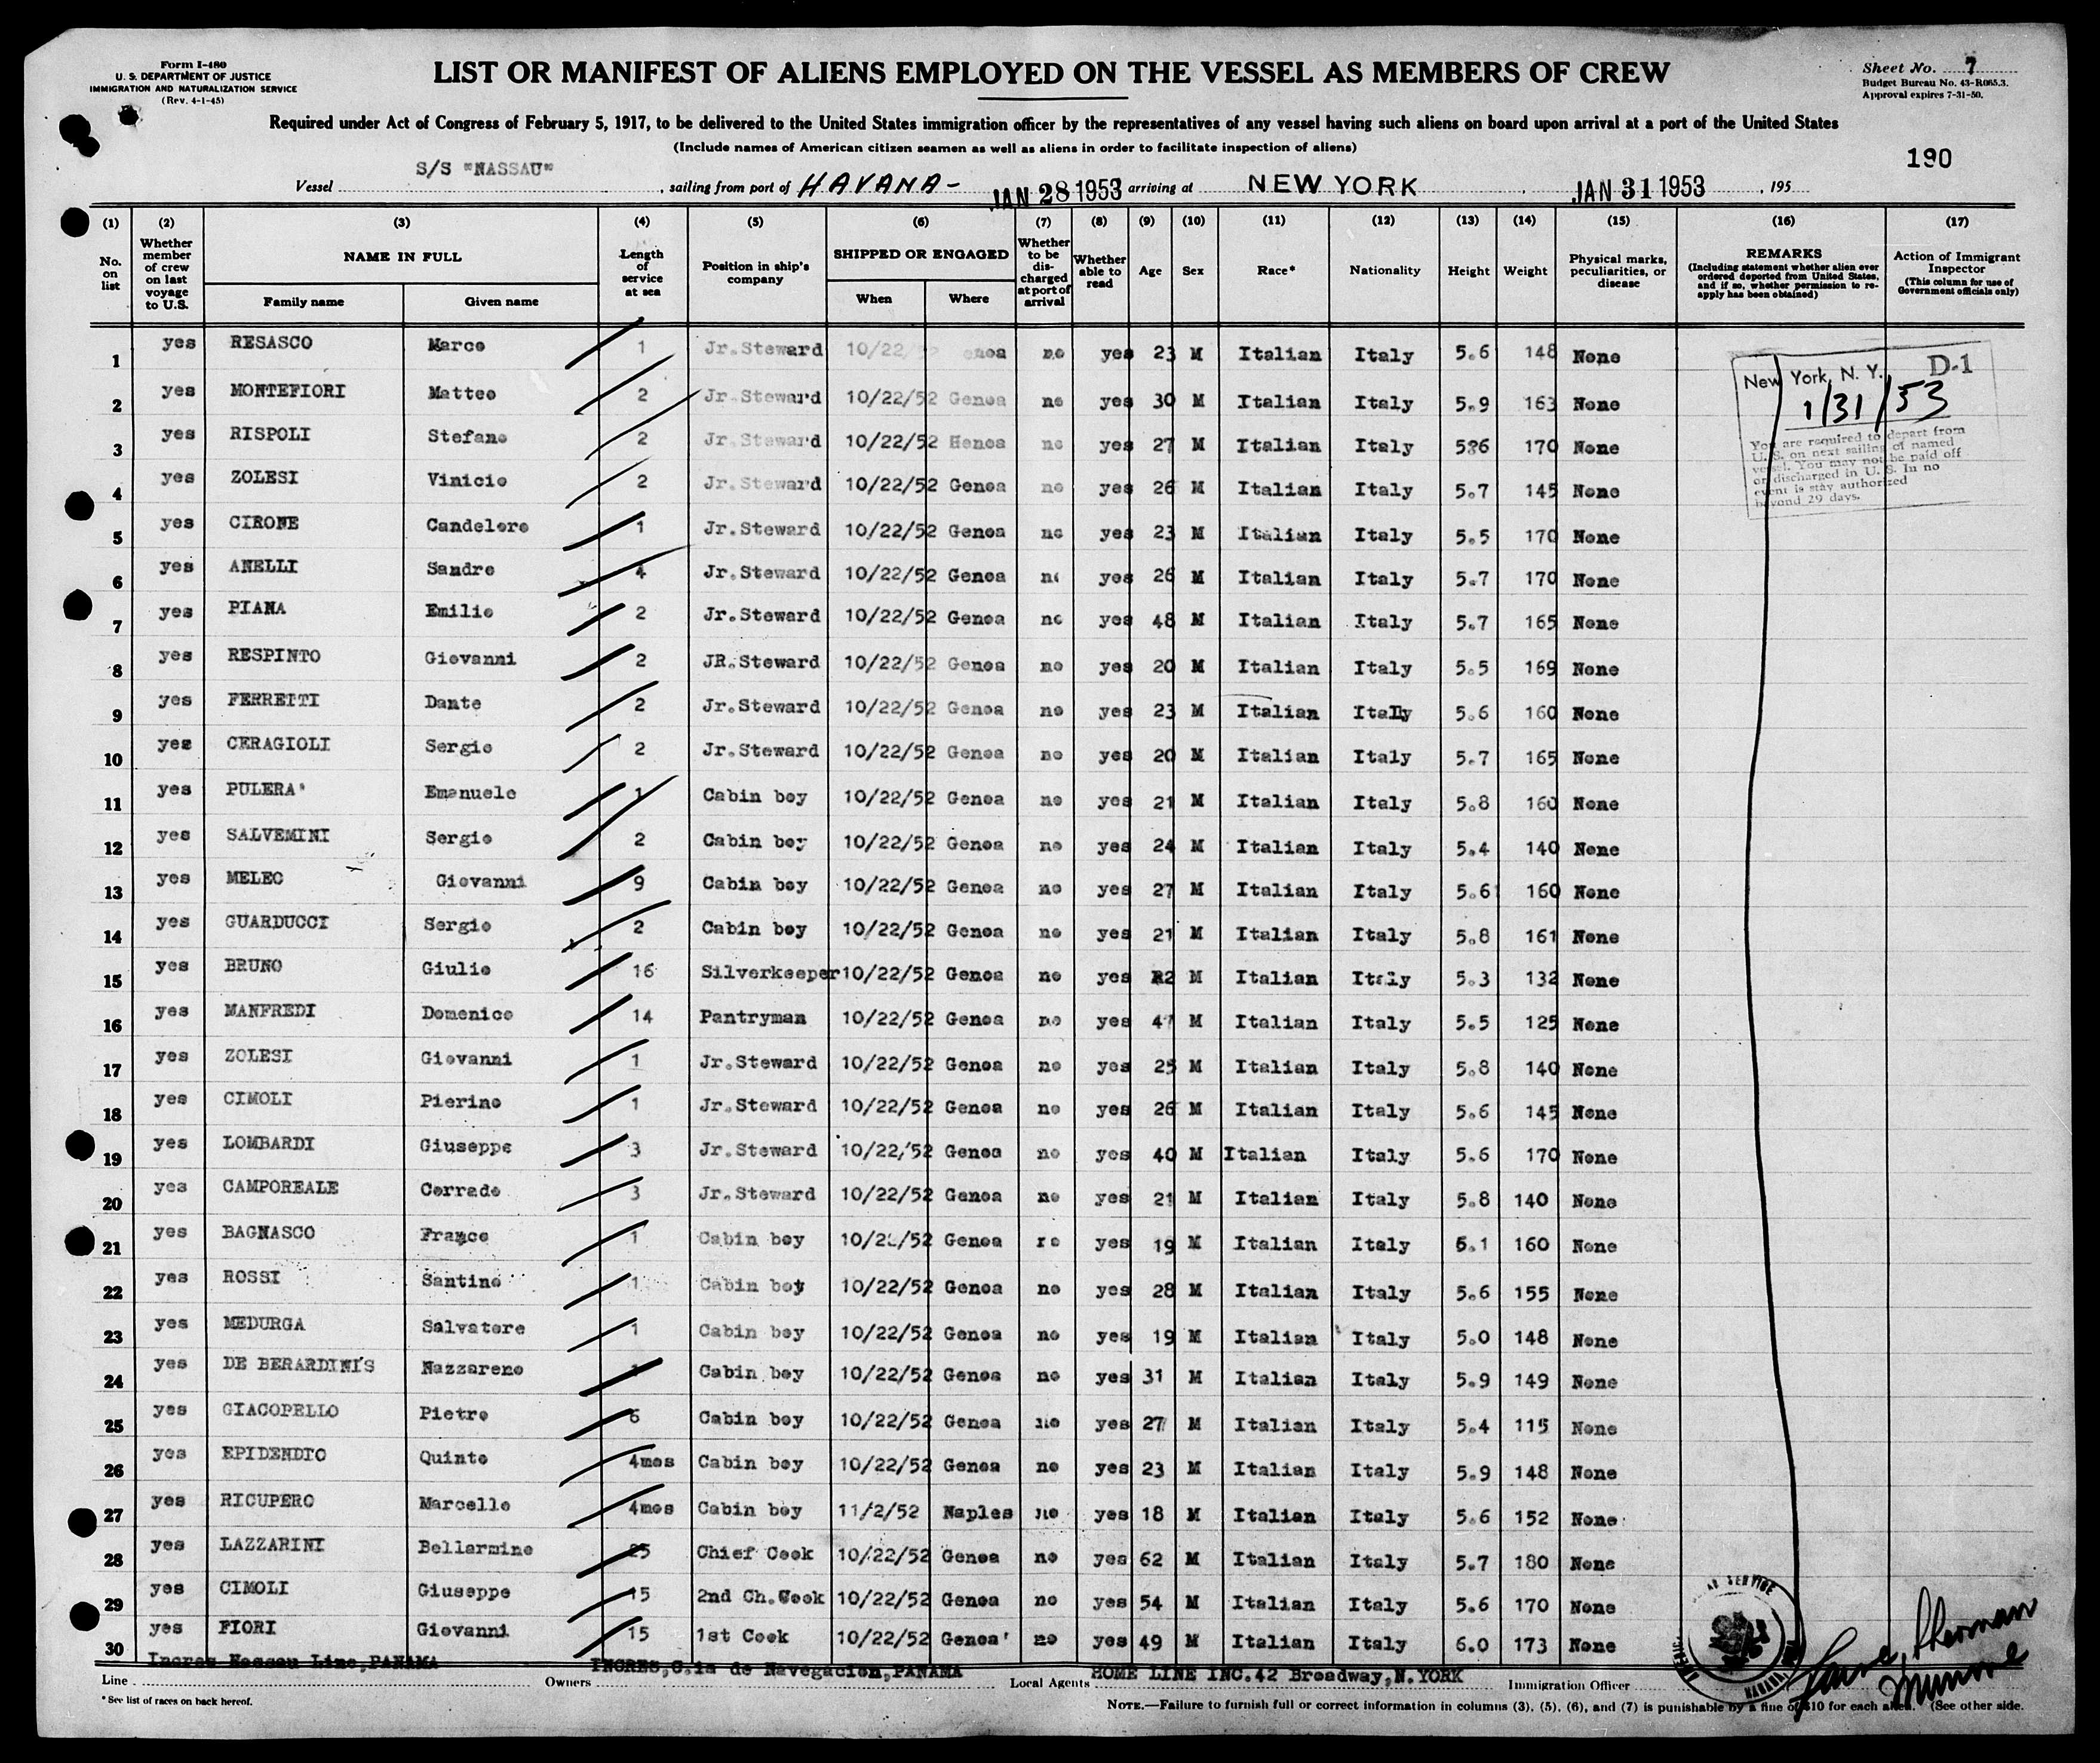 Form I-480
U. S. DEPARTMENT OF JUSTICE
IMMIGRATION AND NATURALIZATION SERVICE
(Rev. 4-1-45)
LIST OR MANIFEST OF ALIENS EMPLOYED ON THE VESSEL AS MEMBERS OF CREW
Sheet No. 7
Budget Bureau No. 43-R065.3.
Approval expires 7-31-50.
Required under Act of Congress of February 5, 1917, to be delivered to the United States immigration officer by the representatives of any vessel having such aliens on board upon arrival at a port of the United States
(Include names of American citizen seamen as well as aliens in order to facilitate inspection of aliens)
190
Vessel S/S "NASSAU", sailing from port of HAVANA- JAN 28 1953 arriving at NEW YORK, JAN 31 1953, 195
(1) (2) (3) (4) (5) (6) (7) (8) (9) (10) (11) (12) (13) (14) (15) (16) (17)
No. on list
Whether member of crew on last voyage to U.S.
NAME IN FULL
Family name
Given name
Length of service at sea
Position in ship's company
SHIPPED OR ENGAGED
When
Where
Whether to be discharged at port of arrival
Whether able to read
Age
Sex
Race*
Nationality
Height
Weight
Physical marks, peculiarities, or disease
REMARKS
(Including statement whether alien ever ordered deported from United States, and if so, whether permission to reapply has been obtained)
Action of Immigrant Inspector
(This column for use of Government officials only)
1 yes RESASCO Marco 1 Jr.Steward 10/22/ no yes 23 M Italian Italy 5.6 148 None
2 yes MONTEFIORI Matteo 2 Jr.Steward 10/22/52 Genoa no yes 30 M Italian Italy 5.9 163 None
3 yes RISPOLI Stefano 2 Jr.Steward 10/22/52 Henoa no yes 27 M Italian Italy 170 None
4 yes ZOLESI Vinicio 2 Jr.Steward 10/22/52 Genoa no yes 26 M Italian Italy 5.7 145 None
5 yes CIRONE Candeloro 1 Jr.Steward 10/22/52 Genoa no yes 23 M Italian Italy 5.5 170 None
6 yes ANELLI Sandro 4 Jr.Steward 10/22/52 Genoa no yes 26 M Italian Italy 5.7 170 None
7 yes PIANA Emilio 2 Jr.Steward 10/22/52 Genoa no yes 48 M Italian Italy 5.7 165 None
8 yes RESPINTO Giovanni 2 JR.Steward 10/22/52 Genoa no yes 20 M Italian Italy 5.5 169 None
9 yes FERRETTI Dante 2 Jr.Steward 10/22/52 Genoa no yes 23 M Italian Italy 5.6 160 None
10 yes CERAGIOLI Sergio 2 Jr.Steward 10/22/52 Genoa no yes 20 M Italian Italy 5.7 165 None
11 yes PULERA' Emanuele 1 Cabin boy 10/22/52 Genoa no yes 21 M Italian Italy 5.8 160 None
12 yes SALVEMINI Sergio 2 Cabin boy 10/22/52 Genoa no yes 24 M Italian Italy 5.4 140 None
13 yes MELEO Giovanni 9 Cabin boy 10/22/52 Genoa no yes 27 M Italian Italy 5.6 160 None
14 yes GUARDUCCI Sergio 2 Cabin boy 10/22/52 Genoa no yes 21 M Italian Italy 5.8 161 None
15 yes BRUNO Giulio 16 Silverkeeper 10/22/52 Genoa no yes M Italian Italy 5.3 132 None
16 yes MANFREDI Domenico 14 Pantryman 10/22/52 Genoa no yes 47 M Italian Italy 5.5 125 None
17 yes ZOLESI Giovanni 1 Jr.Steward 10/22/52 Genoa no yes 25 M Italian Italy 5.8 140 None
18 yes CIMOLI Pierino 1 Jr.Steward 10/22/52 Genoa no yes 26 M Italian Italy 5.6 145 None
19 yes LOMBARDI Giuseppe 3 Jr.Steward 10/22/52 Genoa no yes 40 M Italian Italy 5.6 170 None
20 yes CAMPOREALE Corrado 3 Jr.Steward 10/22/52 Genoa no yes 21 M Italian Italy 5.8 140 None
21 yes BAGNASCO Franco 1 Cabin boy 10/22/52 Genoa no yes 19 M Italian Italy 6.1 160 None
22 yes ROSSI Santino 1 Cabin boy 10/22/52 Genoa no yes 28 M Italian Italy 5.6 155 None
23 yes MEDURGA Salvatore 1 Cabin boy 10/22/52 Genoa no yes 19 M Italian Italy 5.0 148 None
24 yes DE BERARDINIS Nazzareno Cabin boy 10/22/52 Genoa no yes 31 M Italian Italy 5.9 149 None
25 yes GIACOPELLO Pietro 6 Cabin boy 10/22/52 Genoa no yes 27 M Italian Italy 5.4 115 None
26 yes EPIDENDIO Quinto 4mos Cabin boy 10/22/52 Genoa no yes 23 M Italian Italy 5.9 148 None
27 yes RICUPERO Marcello 4mos Cabin boy 11/2/52 Naples no yes 18 M Italian Italy 5.6 152 None
28 yes LAZZARINI Bellarmino 25 Chief Cook 10/22/52 Genoa no yes 62 M Italian Italy 5.7 180 None
29 yes CIMOLI Giuseppe 15 2nd Ch.Cook 10/22/52 Genoa no yes 54 M Italian Italy 5.6 170 None
30 yes FIORI Giovanni 15 1st Cook 10/22/52 Genoa no yes 49 M Italian Italy 6.0 173 None
New York, N. Y. D-1
1/31/53
You are required to depart from
U. S. on next sailing of named
vessel. You may not be paid off
or discharged in U. S. In no
event is stay authorized
beyond 29 days.
Line Ingres Nassau Line,PANAMA Owners INGRES,C.ia de Navegacion,PANAMA Local Agents HOME LINE INC.42 Broadway,N.YORK Immigration Officer
* See list of races on back hereof.
NOTE.—Failure to furnish full or correct information in columns (3), (5), (6), and (7) is punishable by a fine of $10 for each alien. (See other side.